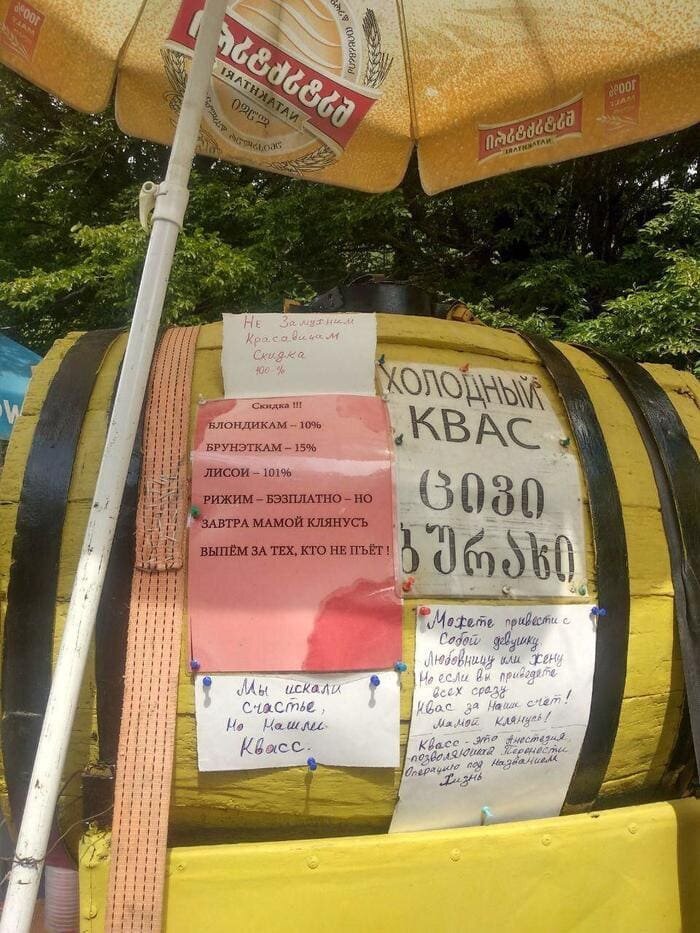 100%
ნატახტარი
NATAKHTARI
ნატახტარი
NATAKHTARI
100%
Не Замужним
Красавицам
Скидка
100-%
Скидка !!!
БЛОНДИКАМ – 10%
БРУНЭТКАМ – 15%
ЛИСОИ – 101%
РИЖИМ – БЭЗПЛАТНО – НО
ЗАВТРА МАМОЙ КЛЯНУСЪ
ВЫПЁМ ЗА ТЕХ, КТО НЕ ПЪЁТ!
ХОЛОДНЫЙ
КВАС
ცივი
ბურახი
Мы искали
счастье,
Но Нашли
Квасс.
Можете привести с
Собой девушку
Любовницу или жену
Но если вы приведете
всех сразу
Квас за наш счёт!
Мамой клянусь!
Квасс - это Анестезия
позволяющая Перенести
Операцию под названием
Жизнь